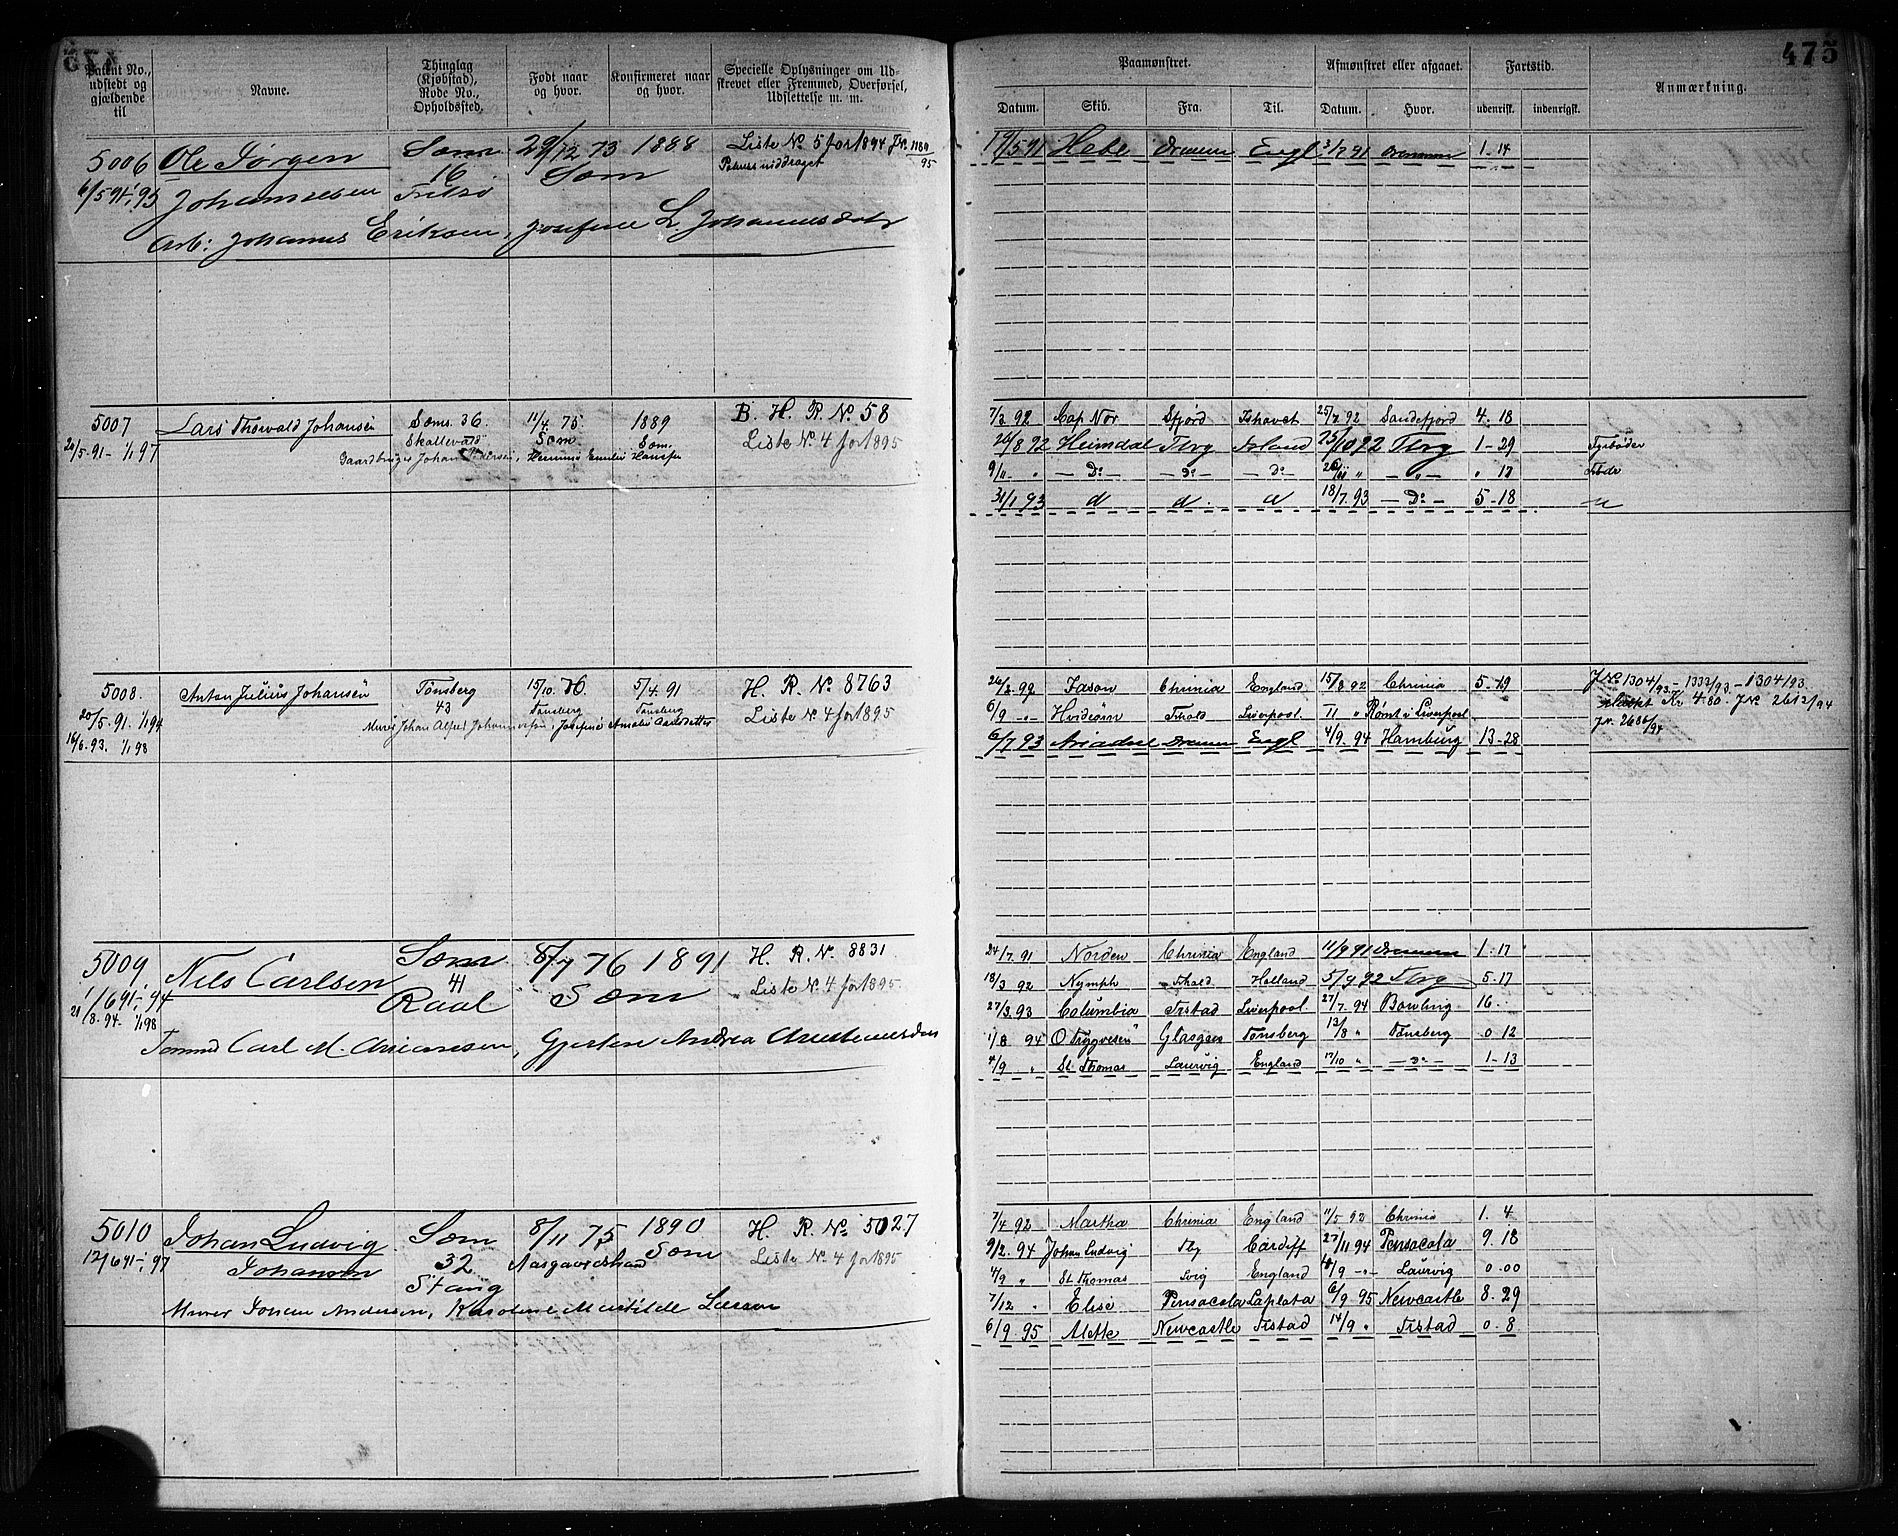 475
Patent No., udstedt og gjældende til
Navne.
Thinglag (Kjøbstad), Rode No., Opholdssted,
Født naar og hvor.
Konfirmeret naar og hvor.
Specielle Oplysninger om Udskrevet eller Fremmed, Overførsel, Udslettelse m. m.
Paamønstret.
Afmønstret eller afgaaet.
Fartstid.
Anmærkning.
Datum. Skib. Fra. Til. Datum. Hvor. udenrikſ. indenrigſk.
5006 Ole Jørgen Sæm 29/12 73 1888 Liste No 5 for 1894 J№ 1180/95
16 Sæm
6/5 91 1/1 95 Johannesen
Arb: Johannes Eriksen, Josefine L. Johannesdatr
19/5 91 Hebe Drammen Engl 3/7 91 Drammen 1-14
5007 Lars Thorvald Johansen Sæms. 36 11/4 75 1889 B. H. R. No 58
20/5-91- 1/1 97 Skallevold Sæm Sæm. Liste No 4 for 1895
7/3 92 Cap Nor Sfjord Ishavet 25/7 92 Sandefjord 4. 18
20/8 92 Heimdal Tbrg Island 23/10 92 Tbrg 1-29
9/11 " - Do - - Do - - Do - " " 17
31/1 93 18/7 93 - Do - 5-18
5008. Anton Julius Johansen Tønsberg 15/10. 76. 5/4. 91 H. R. No 8763
43 Tønsberg Tønsberg
20/5-91. 1/1 94 Liste No 4 for 1895
Murer Johan Alfred Johannessen, Josefine Amalie Carlsdatter
16/6. 93. 1/1 98
26/3 92 Jason Chrinia England 15/8 92 Chrinia 5-19 J№ 1304/93 - 1332/93 - 1304/93
6/9 -"- Hvideørn Fthald Liverpool Rømt i Liverpool Kr 4.80. J№ 2612/94
6/7 93 Ariadne Drammen Engl 4/9 94 Hamburg 13-28 J№. 2636/94
5009 Nils Carlsen Sæm 8/7 76 1891 H. R. No. 8831
41
1/6 91 - 94 Raal Sæm Liste No 4 for 1895
21/8. 94. 1/1 98
Tømmd Carl M. Andrea
24/7. 91 Norden Chrinia England 11/9 91 Drammen 1-17
18/3 92 Nymph Fthald Holland 5/9 92 Tbrg 5-17
27/3. 93 Columbia Frstad Liverpool 27/7. 94 Bowling 16
1/8 94 O Trygvesen Glasgow Tønsberg 13/8 " Tønsberg 0 12
4/9 " St. Thomas Laurvig England 17/10 " - Do - 1-13
5010 Johan Ludvig Sæm 8/11 75 1890 H. R. No 5027
12/6 91 - 1/1 97 Johansen 32 Aasgaardstrand Sæm Liste No 4 for 1895
Stang
Murer Johan Andersen, Karoline Mathilde Larsen
7/4 92 Martha Chrinia England 11/5 92 Chrinia 1. 4
9/2. 94 Johan Ludvig Tbg Cardiff 27/11 94 Pensacola 9. 18
4/9 " St Thomas Lvig England /9 -"- Laurvig 0.00
7/12 " Elise Pensacola Laplata 6/9 95 Newcastle 8. 29
6/9. 95 Alette Newcastle Frstad 14/9 " Frstad 0. 8